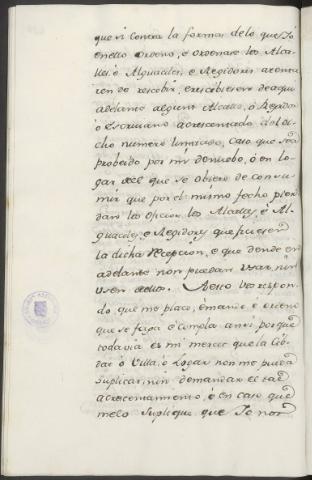 que si contra la forma de lo que Jo
en esto ordeno, é ordenare los Alca-
lles, é Alguaciles, é Regidores atenta-
ren de rescebir, é rescibieren de aqui
adelante algunt Alcalle, ó Regidor
ó Escriuano acrescentado del di-
cho numero limitado, caso que sea
probeido por mi denuebo, ó en lo-
gar del que se obiere de consu-
mir que por el mismo fecho pier-
dan los oficios los Alcalles, é Al-
guaciles, é Regidores que fueren
en la dicha recepcion, é que dende en
adelante non puedan usar, nin
usen dellos. A esto vos respon-
do que me place, é mando é ordeno
que se faga é cumpla ansi, por que
todavia es mi merced que la Cib-
dat ó Villa, ó Logar non me pueda
suplicar, nin demandar el tal
acrescentamiento, é en caso que
me lo suplique que Jo non